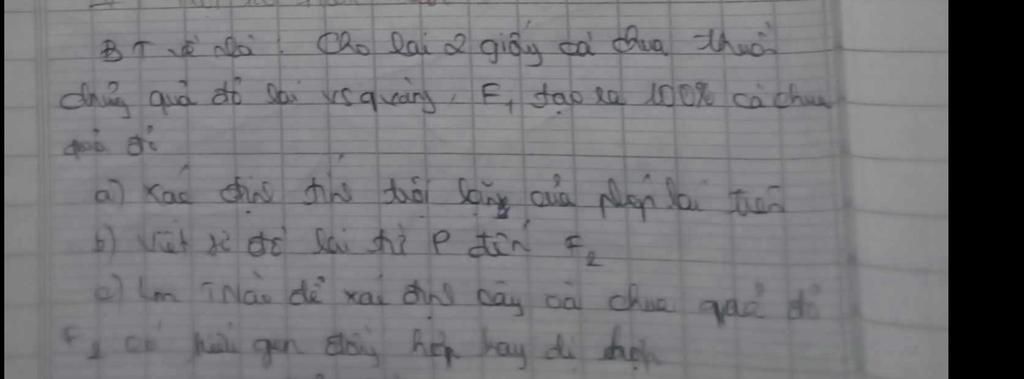 BT về nhà. Cho lai 2 giống cà chua thuần
chủng quả đỏ lai vs quả vàng, F1 tạo ra 100% cà chua
quả đỏ
a) Xác định tính trội lặn của phép lai trên
b) Viết sơ đồ lai từ P đến F2
c) Làm thế nào để xác định cây cà chua quả đỏ
có kiểu gen đồng hợp hay dị hợp